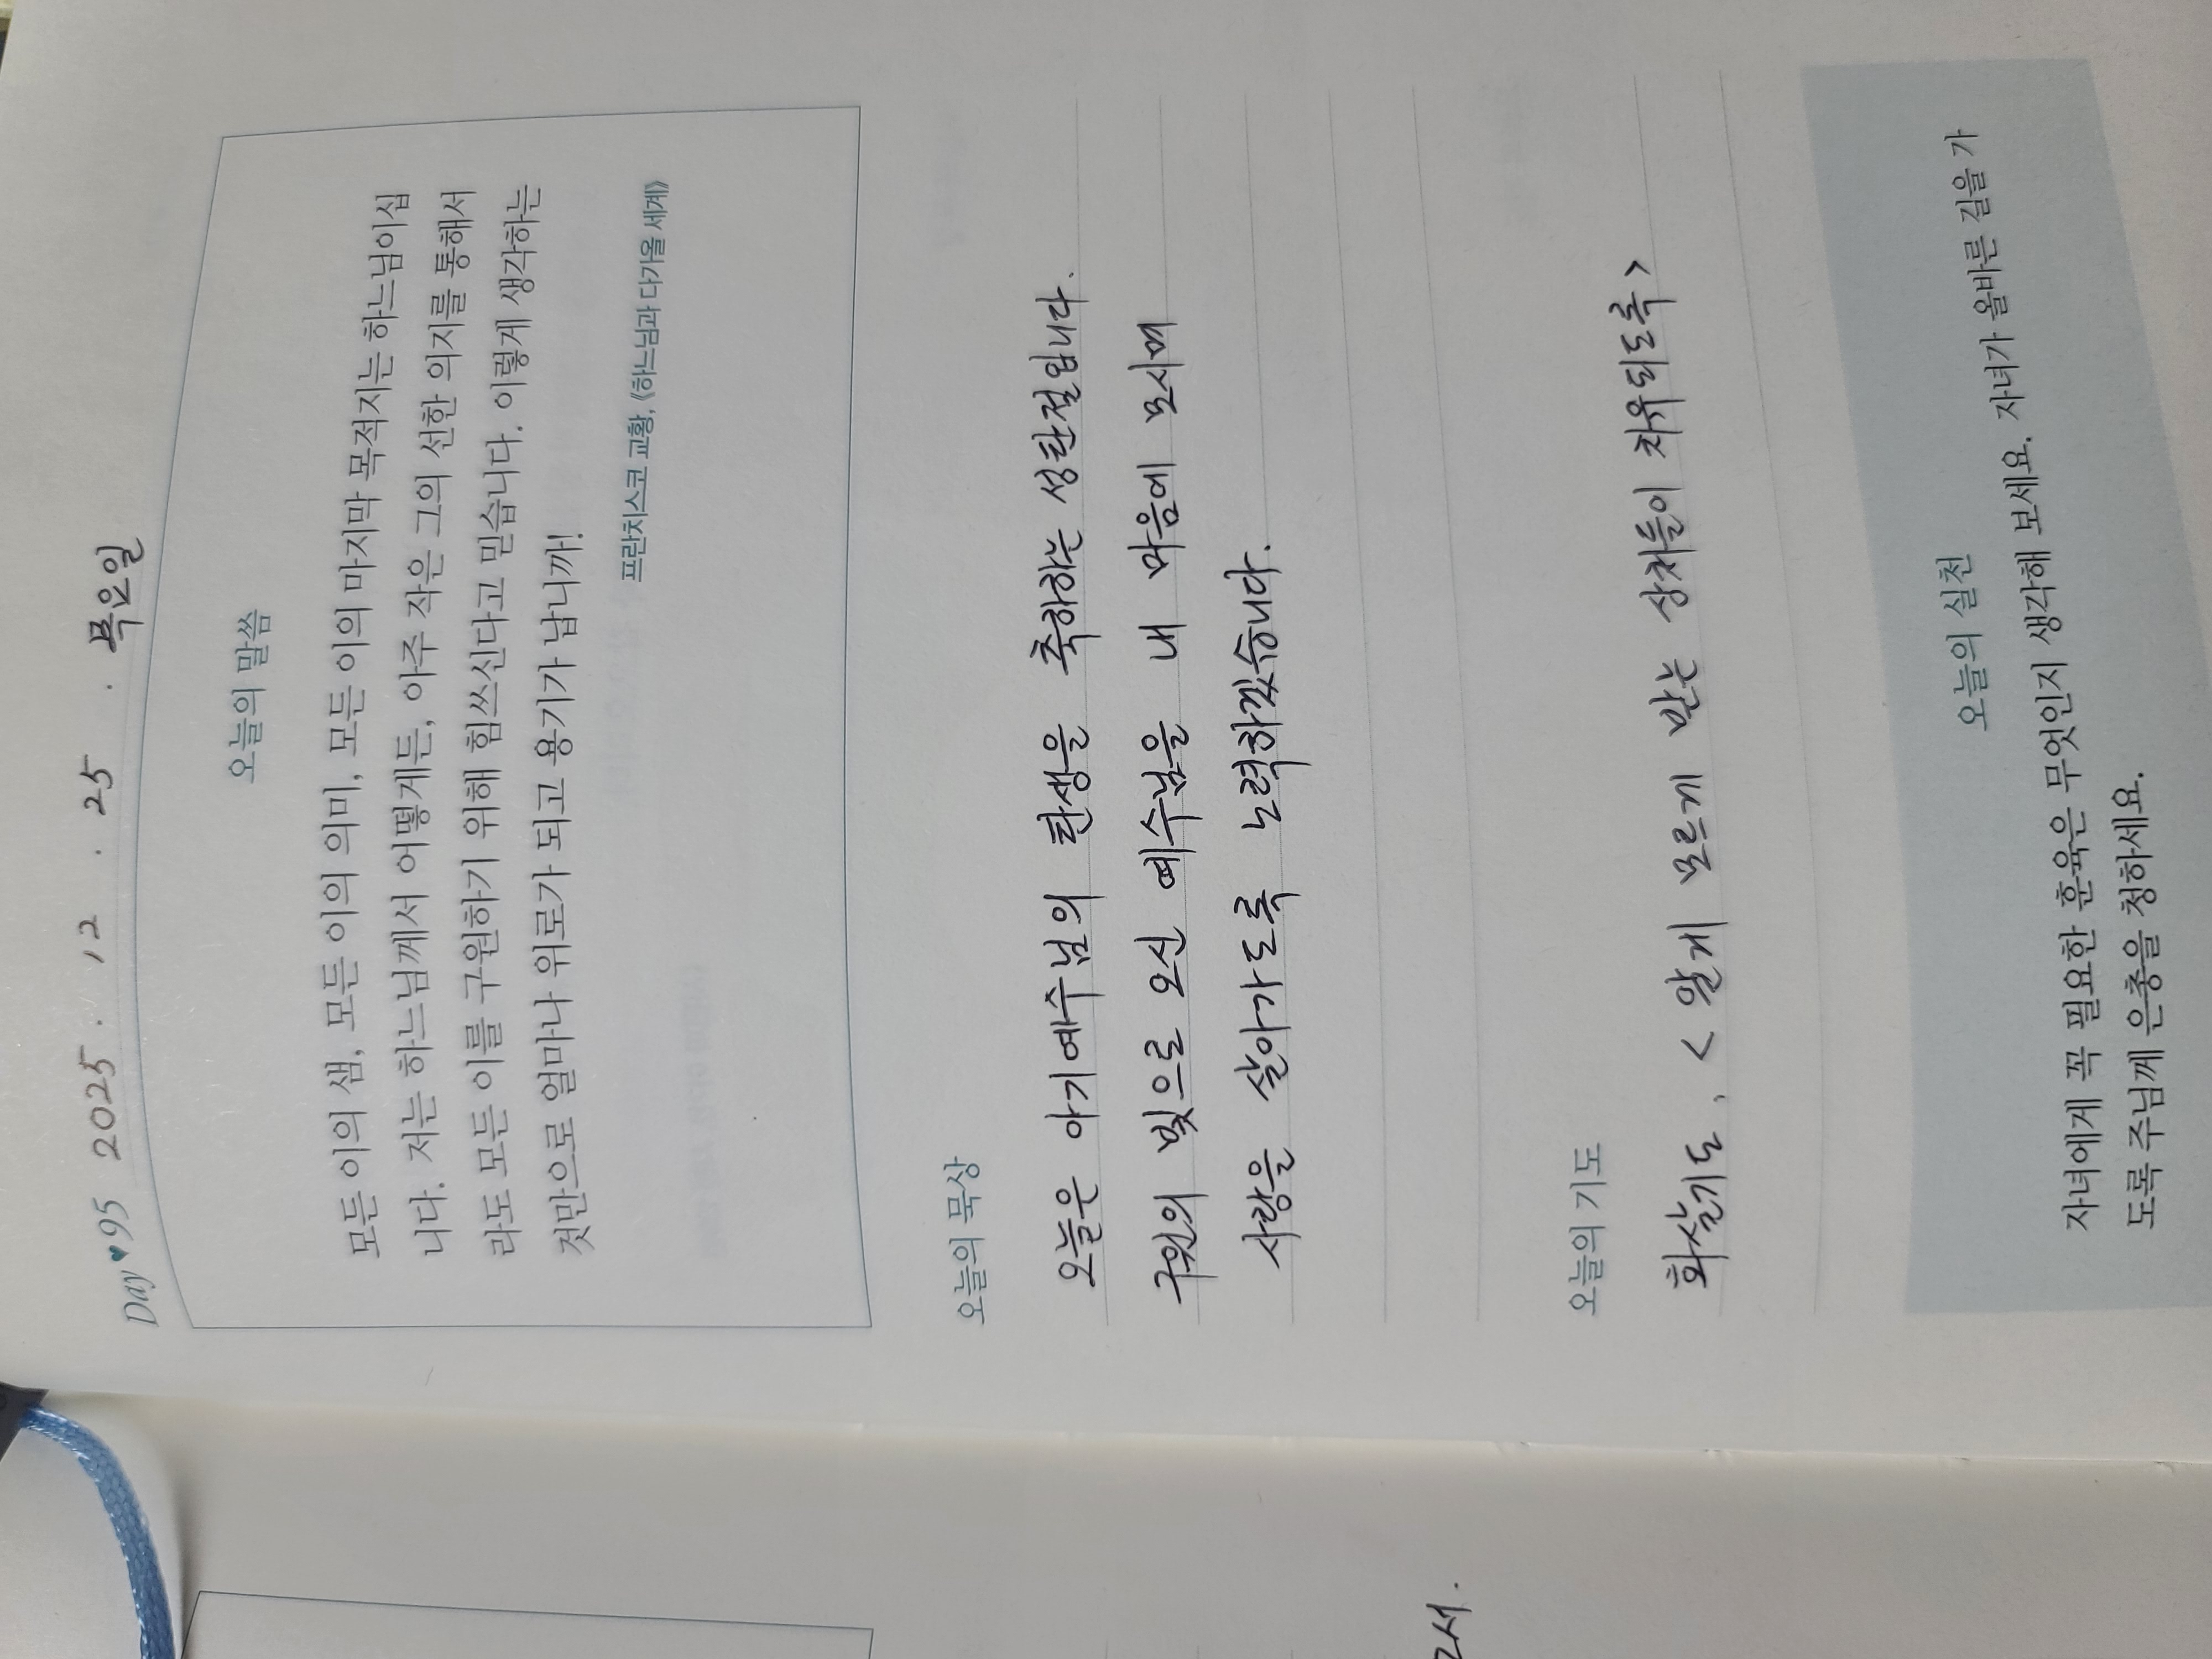 Day♥95 2025. 12. 25. 목요일
오늘의 말씀
모든 이의 샘, 모든 이의 의미, 모든 이의 마지막 목적지는 하느님이십
니다. 저는 하느님께서 어떻게든, 아주 작은 그의 선한 의지를 통해서
라도 모든 이를 구원하기 위해 힘쓰신다고 믿습니다. 이렇게 생각하는
것만으로 얼마나 위로가 되고 용기가 납니까!
프란치스코 교황, 《하느님과 다가올 세계》
오늘의 묵상
오늘은 아기예수님의 탄생을 축하하는 성탄절입니다.
구원의 빛으로 오신 예수님을 내 마음에 모시며
사랑을 살아가도록 노력하겠습니다.
오늘의 기도
화살기도, <알게 모르게 받는 상처들이 치유되도록>
오늘의 실천
자녀에게 꼭 필요한 훈육은 무엇인지 생각해 보세요. 자녀가 올바른 길을 가
도록 주님께 은총을 청하세요.